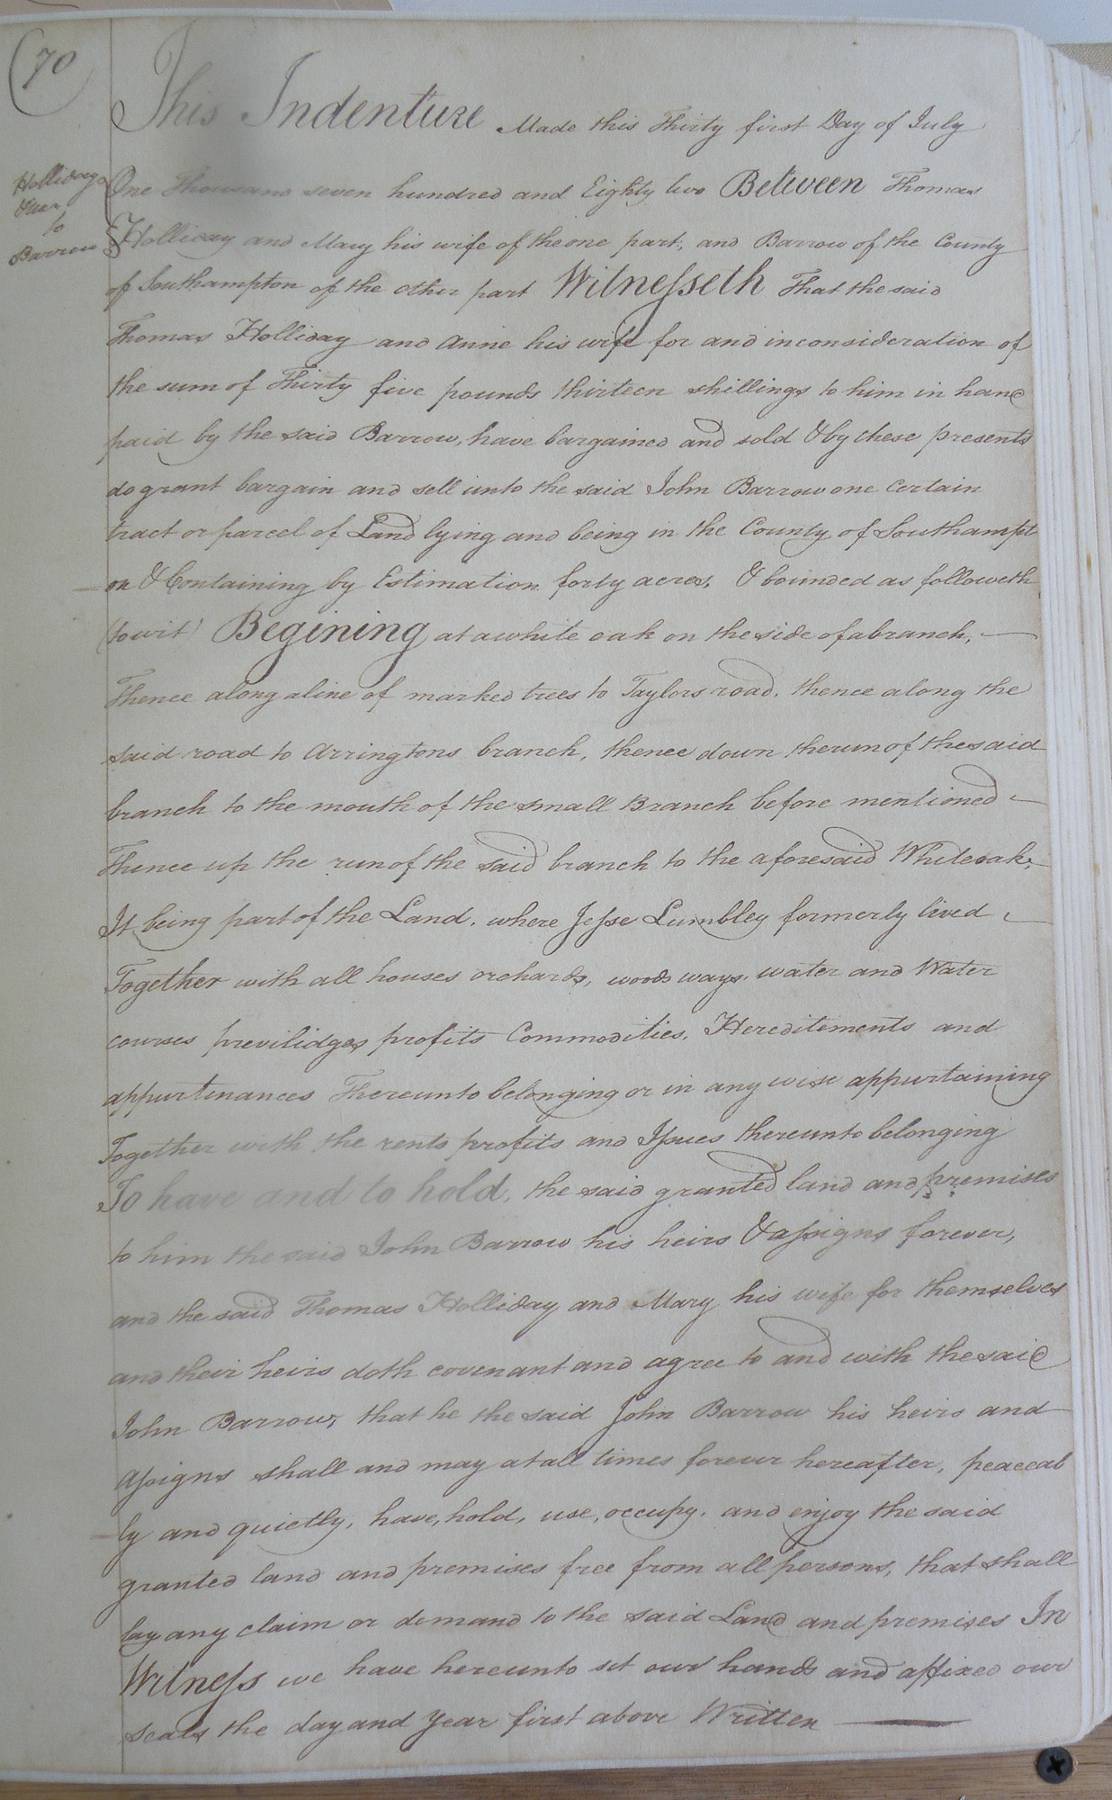 (70)
This Indenture Made this Thirty first Day of July
Holliday &
Uxer
to
Barrow
One Thousand seven hundred and Eighty two Between Thomas
Holliday and Mary his wife of the one part, and Barrow of the County
of Southampton of the other part Witnesseth That the said
Thomas Holliday and Anne his wife for and inconsideration of
the sum of Thirty five pounds thirteen shillings to him in hand
paid by the said Barrow, have bargained and sold & by these presents
do grant bargain and sell unto the said John Barrow one certain
tract or parcel of Land lying and being in the County of Southampt
on & Containing by Estimation forty acres, & bounded as followeth
(towit) Begining at a white oak on the side of a branch,
Thence along a line of marked trees to Taylors road, thence along the
said road to Arringtons branch, thence down the run of the said
branch to the mouth of the small Branch before mentioned
Thence up the run of the said branch to the aforesaid Whiteoak,
It being part of the Land, where Jesse Lumbley formerly lived,
Together with all houses orchards, woods ways, water and Water
courses previlidges profits Commodities, Hereditements and
appurtenances Thereunto belonging or in any wise appurtaining
Together with the rents profits and Issues thereunto belonging
To have and to hold, the said granted land and premises
to him the said John Barrow his heirs & assigns forever,
and the said Thomas Holliday and Mary his wife for themselves
and their heirs doth covenant and agree to and with the said
John Barrow, that he the said John Barrow his heirs and
Assigns shall and may at all times forever hereafter, peaceab
ly and quietly, have, hold, use, occupy, and enjoy the said
granted land and premises free from all persons, that shall
lay any claim or demand to the said Land and premises In
Witness we have hereunto set our hands and affixed our
seals the day and Year first above Written